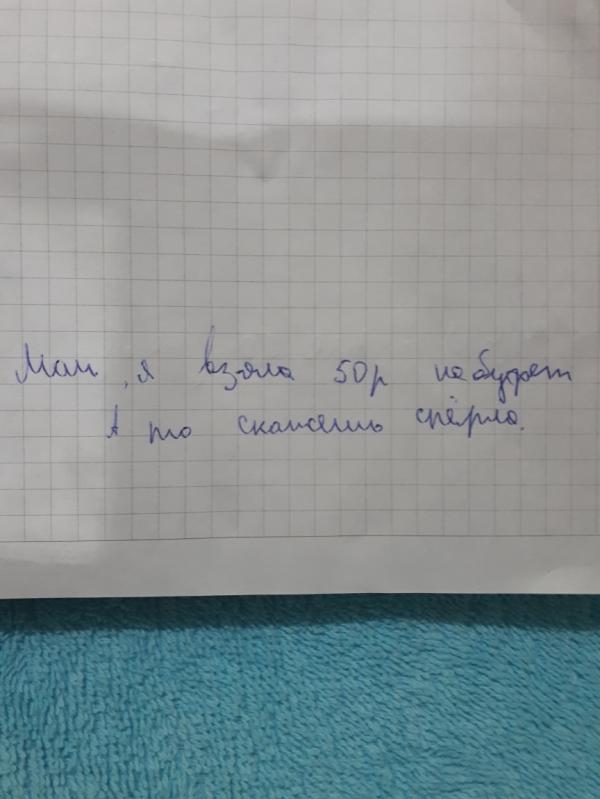 Мам, я взяла 50р на буфет
А то скажешь спёрла.